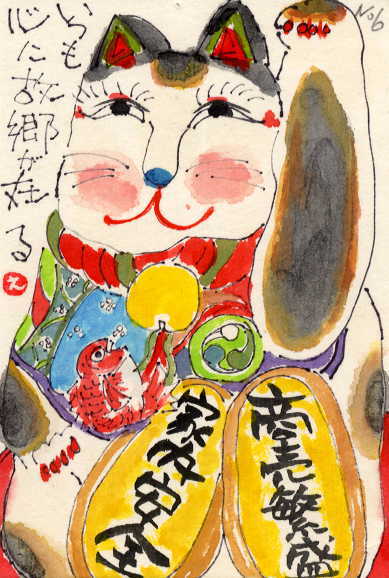 No6
いつも
心に故郷が在る
え
商売繁盛
家内安全